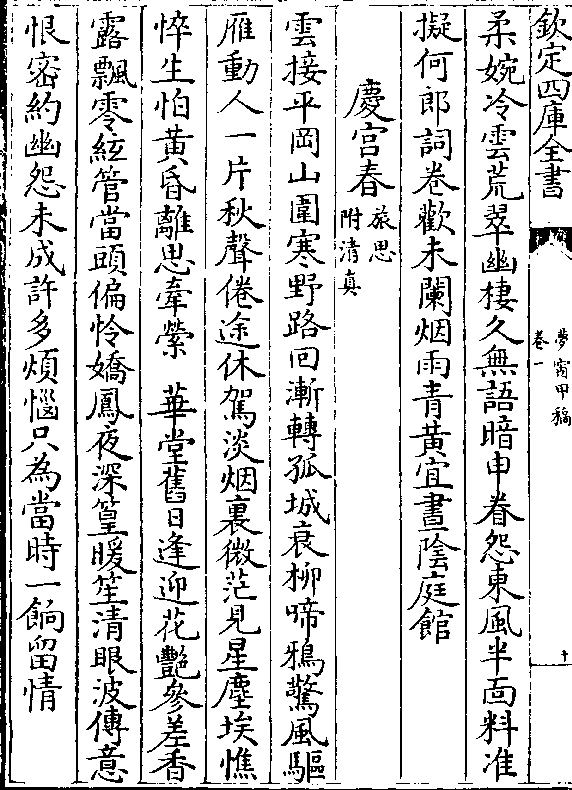 欽定四庫全書
夢窗甲稿
卷一
十
柔婉冷雲荒翠幽棲久無語暗申春怨東風半面料准
擬何郎詞卷歡未闌烟雨青黄宜晝陰庭館
慶宫春旅思
附清真
雲接平岡山圍寒野路回漸轉孤城衰柳啼鴉驚風驅
雁動人一片秋聲倦途休駕淡烟裏微茫見星塵埃憔
悴生怕黄昏離思牽縈 華堂舊日逢迎花艷參差香
露飄零絃管當頭偏怜嬌鳳夜深簧暖笙清眼波傳意
恨密約幽怨未成許多煩惱只為當時一餉留情